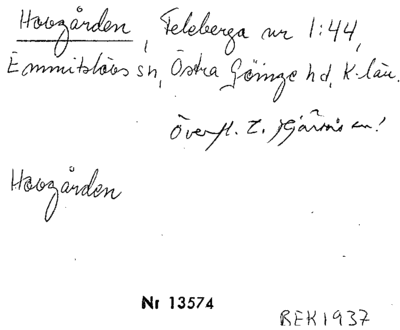 Hovgården, Feleberga nr 1:44,
Emmitslövs sn, Östra Göinge hd, K-län.
Överfl. t. Hjärnås sn!
Hovgården
Nr 13574
BEK 1937